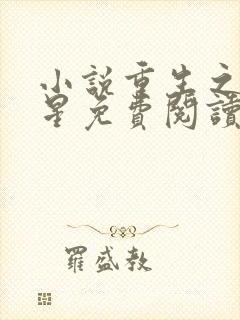 小說重生之
星免費閱讀
羅盛教